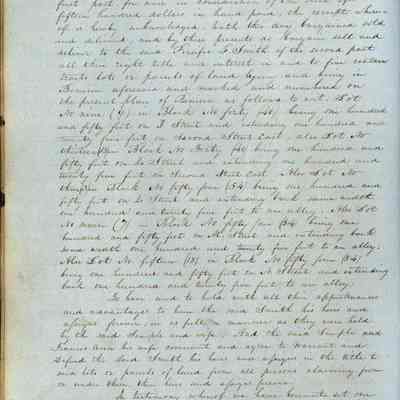 first part for and in consideration of the sum of
fifteen hundred dollars in hand paid, the receipt where
of is hereby acknowledged, hath this day bargained sold
and delivered, and by these presents do bargain sell and
deliver to the said Persifor F. Smith of the second part
all their right title and interest in and to five certain
tracts lots or parcels of land lying and being in
Benicia aforesaid and marked and numbered on
the present plan of Benicia as follows to wit. Lot
No nine (9) in Block No forty (40) being one hundred
and fifty feet on I Street and extending one hundred and
twenty five feet on Second Street East. also Lot No
in Block No forty (40) being one hundred and
fifty feet on Street and extending one hundred and
twenty five feet on Second Street East. Also Lot No
in Block No fifty four (54) being one hundred and
fifty feet on Street and extending back same width
one hundred and twenty five feet to an alley. Also Lot
No seven (7) in Block No fifty four (54) being one
hundred and fifty feet on Street and extending back
same width one hundred and twenty five feet to an alley.
Also Lot No fifteen (15) in Block No fifty four (54)
being one hundred and fifty feet on Street and extending
back one hundred and twenty five feet to an alley.
To have and to hold with all their appurtenances
and advantages to him the said Smith his heirs and
assigns forever in as full a manner as they are held
by the said Semple and wife. And the said Semple and
Frances Ann his wife covenant and agree to warrant and
defend the said Smith his heirs and assigns in the title to
said lots or parcels of land from all persons claiming from
or under them their heirs and assigns forever.
In testimony whereof we have hereunto set our